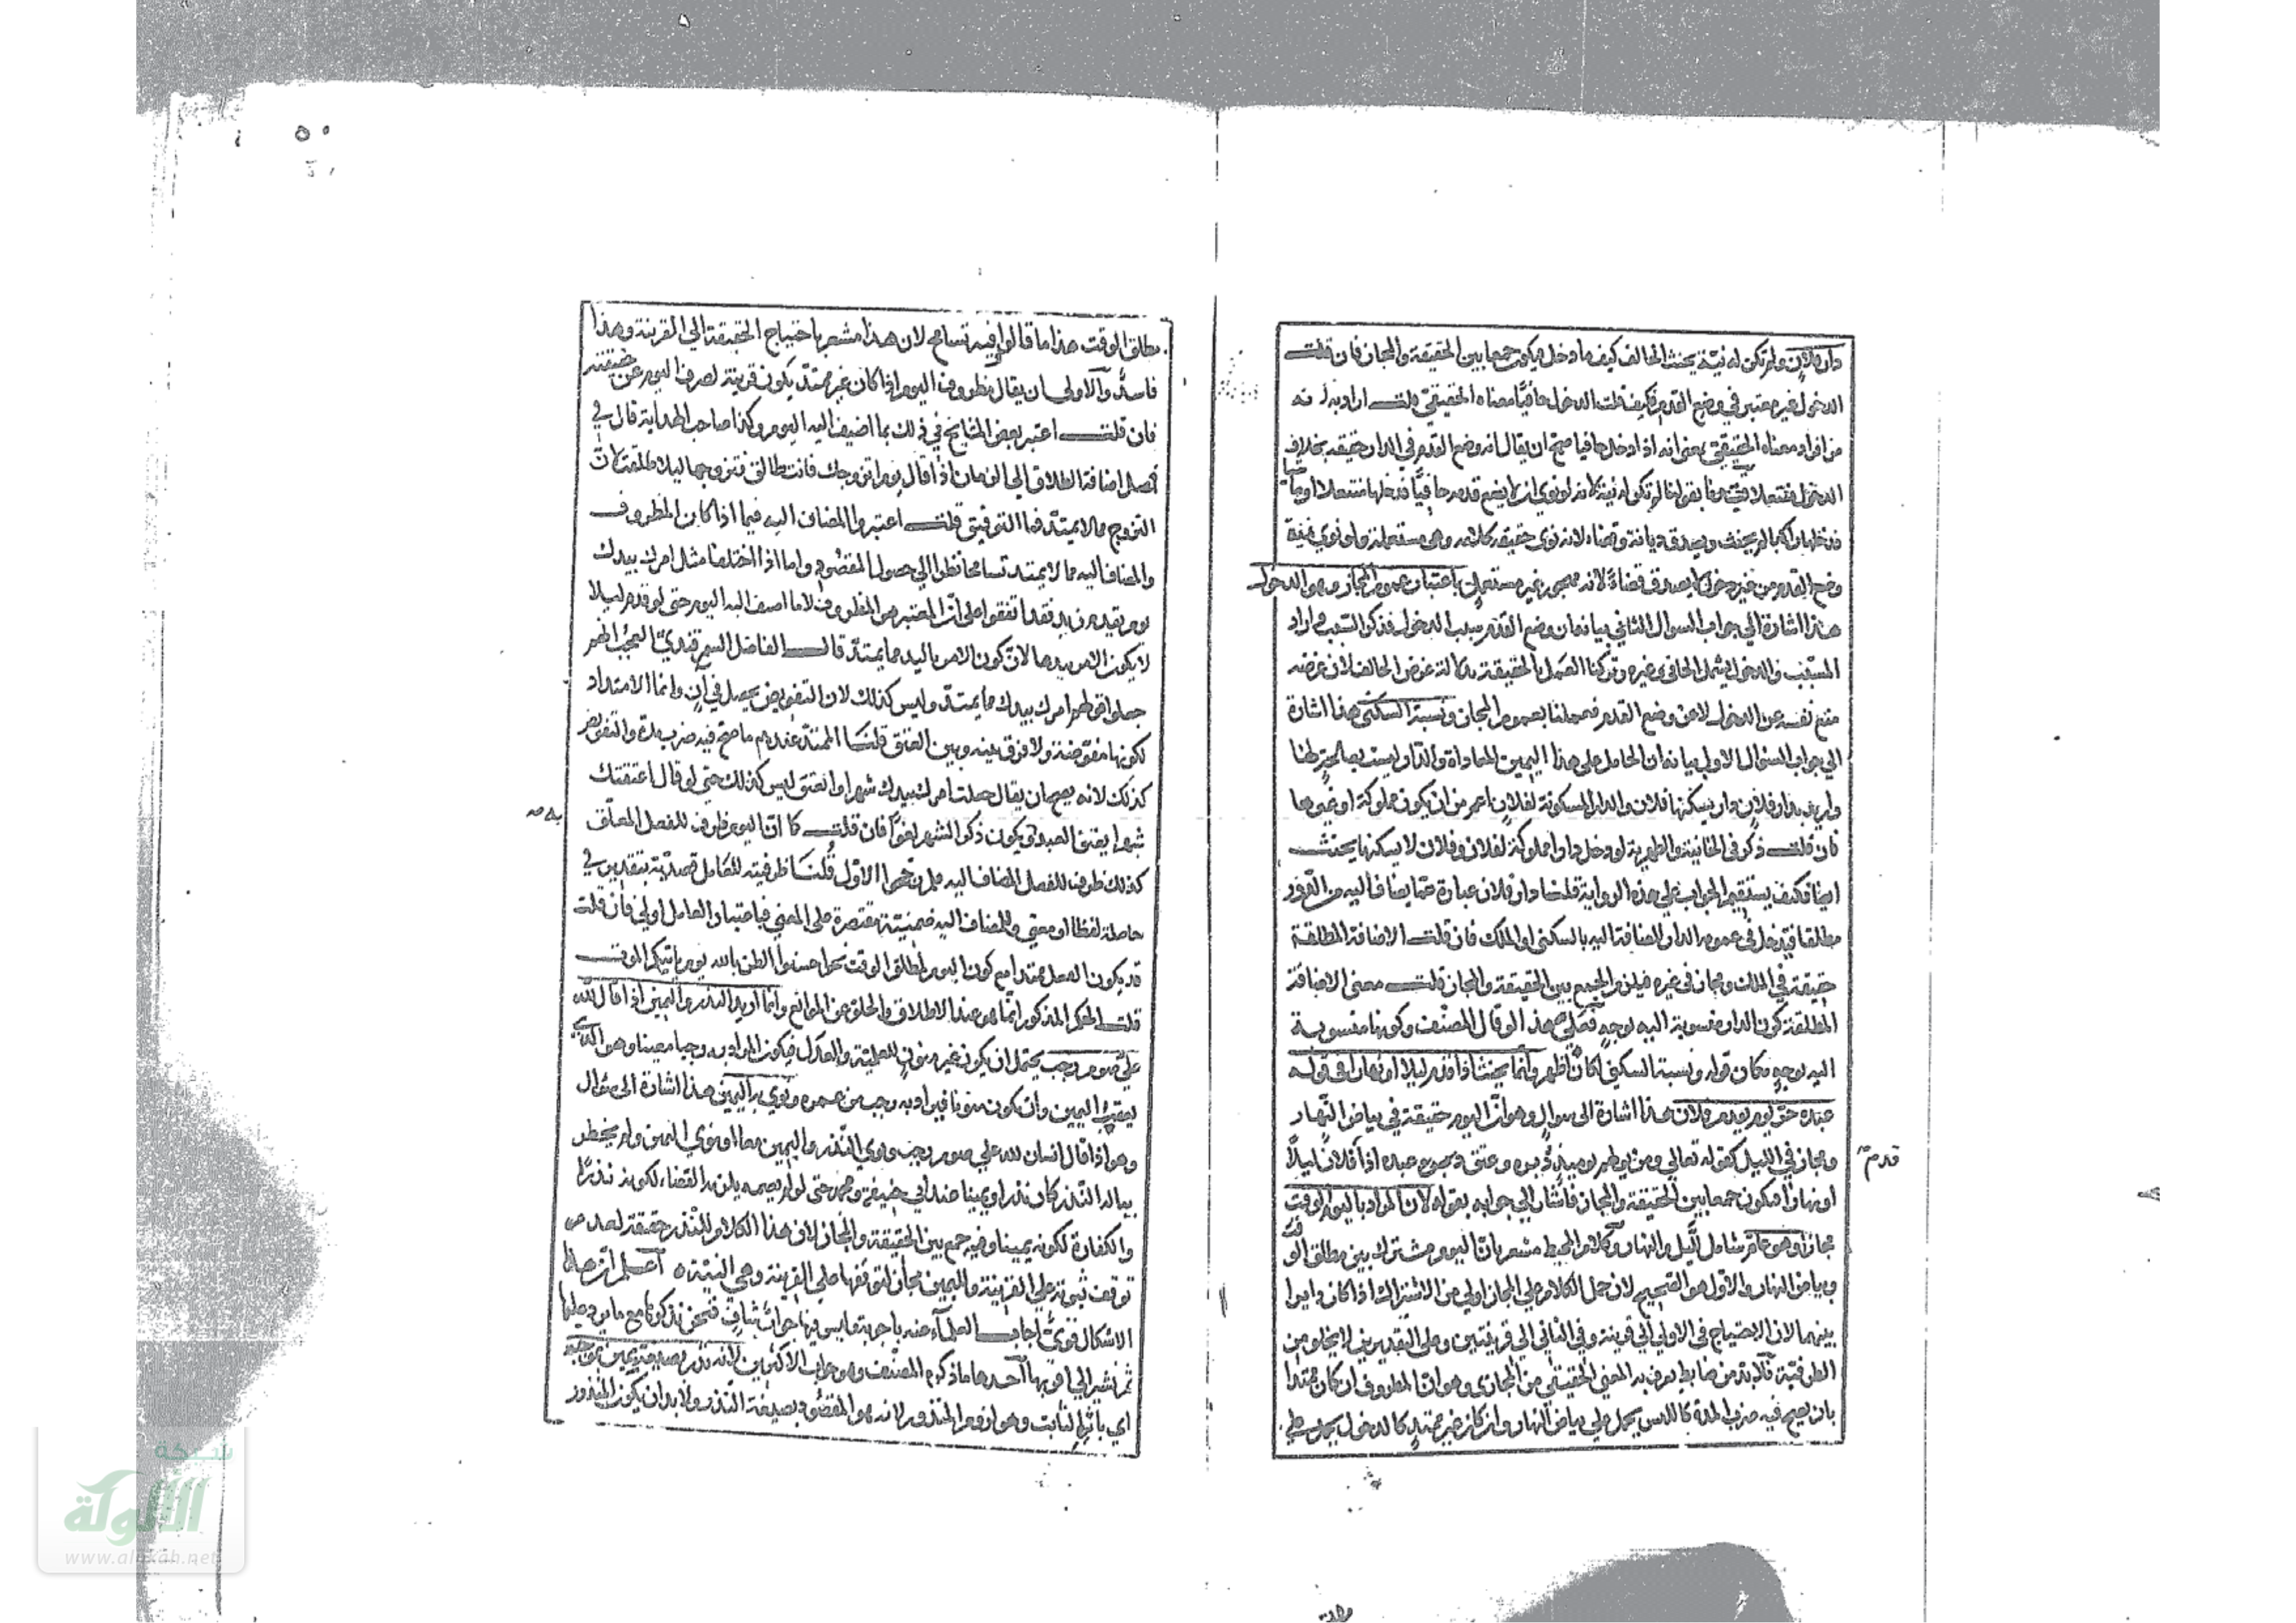 دار فلان ولم تكن له نية يحنث الحالف كيف ما دخل فيكون جمعا بين الحقيقة والمجاز فان قلت
الدخول غير معتبر في وضع القدم فكيف قلت الدخول حافيا معناه الحقيقي قلت اراد به انه
من افراد معناه الحقيقي بمعني انه اذا دخل حافيا صح ان يقال انه وضع القدم في الدار حقيقة بخلاف
الدخول متنعلا قيدنا بقولنا لم تكن له نية لانه لو نوي ان لا يضع قدمه حافيا فدخلها متنعلا او
فدخلها راكبا لم يحنث ويصدق ديانة وقضاء لانه نوي حقيقة كلامه وهي مستعملة ولو نوي
وضع القدم من غير دخول لا يصدق قضاء لانه مهجور غير مستعمل باعتبار عموم المجاز وهو الدخول
هذا اشارة الي جواب السوال الثاني بيانه ان وضع القدم سبب الدخول فذكر السبب واراد
المسبب والدخول يشمل الحافي وغيره وتركنا العمل بالحقيقة بدلالة غرض الحالف لان غرضه
منع نفسه عن الدخول لا عن وضع القدم فعملنا بعموم المجاز ونسبة السكني هذا اشارة
الي جواب السوال الاول بيانه ان الحامل علي هذا اليمين المعاداة والدار ليست بصالحة لها
واريد بدار فلان دار يسكنها فلان والدار المسكونة لفلان اعم من ان يكون مملوكة او غيرها
فان قلت ذكر في الخانية والظهيرية لو دخل دارا مملوكة لفلان وفلان لا يسكنها يحنث
ايضا فكيف يستقيم الجواب علي هذه الرواية قلنا دار فلان عبارة عما يضاف اليه من الدور
مطلقا فيدخل في عموم الدار المضافة اليه بالسكني او الملك فان قلت الاضافة المطلقة
حقيقة في الملك ومجاز في غيره فيلزم الجمع بين الحقيقة والمجاز قلت معني الاضافة
المطلقة كون الدار منسوبة اليه بوجه فعلي هذا لو قال المصنف وكونها منسوبة
اليه بوجه مكان قوله ونسبة السكني لكان اظهر وانما يحنث اذا قدم ليلا او نهارا في قوله
عبده حر يوم يقدم فلان هذا اشارة الي سوال وهو ان اليوم حقيقة في بياض النهار
ومجاز في الليل كقوله تعالي ومن يولهم يومئذ دبره وعتق عبده اذا فلان ليلا
قدم
او نهارا فيكون جمعا بين الحقيقة والمجاز فاشار الي جوابه بقوله لان المراد باليوم الوقت
مجازا وهو عام شامل لليل والنهار وكلام المحيط مشعر بان اليوم مشترك بين مطلق الوقت
وبياض النهار والاول هو الصحيح لان حمل الكلام علي المجاز اولي من الاشتراك اذا كان دايرا
بينهما لان الاحتياج في الاول الي قرينة وفي الثاني الي قرينتين وعلي التقديرين لا يخلو من
الظرفية فلا بد من ضابط يعرف به المعني الحقيقي من المجازي وهو ان المظروف ان كان ممتدا
بان يصح فيه ضرب المدة كاللبس يحمل علي بياض النهار وان كان غير ممتد كالدخول يحمل علي
مطلق الوقت هذا ما قالوا وفيه تسامح لان هذا مشعر باحتياج الحقيقة الي القرينة وهذا
فاسد والاولي ان يقال مظروف اليوم اذا كان غير ممتد يكون قرينة لصرف اليوم عن حقيقته
فان قلت اعتبر بعض المشايخ في ذلك بما اضيف اليه اليوم وكذا صاحب الهداية قال في
فصل اضافة الطلاق الي الزمان اذا قال يوم اتزوجك فانت طالق فتزوجها ليلا طلقت لان
التزوج مما لا يمتد فما التوفيق قلت اعتبروا المضاف اليه فيما اذا كان المظروف
والمضاف اليه مما لا يمتد تسامحا نظرا الي حصول المقصود واما اذا اختلفا مثل امرك بيدك
يوم يقدم زيد فقد اتفقوا علي ان المعتبر هو المظروف لا ما اضيف اليه اليوم حتي لو قدم ليلا
لا يكون الامر بيدها لان كون الامر باليد مما يمتد قال الفاضل السمرقندي العجب انهم
جعلوا قولهم امرك بيدك مما يمتد وليس كذلك لان التفويض يحصل في آن وانما الامتداد
لكونها مفوضة ولا فرق بينه وبين العتق قلنا الممتد عندهم ما صح فيه ضرب مدة والتفويض
كذلك لانه يصح ان يقال جعلت امرك بيدك شهرا والعتق ليس كذلك حتي لو قال اعتقتك
شهرا يعتق العبد ويكون ذكر الشهر لغوا فان قلت كما ان اليوم ظرف للفعل المعلق
كذلك ظرف للفعل المضاف اليه فلم رجحوا الاول قلنا ظرفيته للعامل قصدية بتقدير في
حاصلة لفظا او معني وللمضاف اليه ضمنية مقتصرة علي المعني فباعتبار العامل اولي فان قلت
قد يكون الفعل ممتدا مع كون اليوم لمطلق الوقت نحو احسنوا الظن بالله يوم ياتيكم الموت
قلت الحكم المذكور انما هو عند الاطلاق والخلو عن الموانع وانما اريد النذر واليمين اذا قال لله
علي صوم رجب يحتمل ان يكون غير منون للعلمية والعدل فيكون المراد به رجبا معينا وهو الذي
يعقب اليمين وان يكون منونا فيراد به رجب من عمره ونوي به اليمين هذا اشارة الي سوال
وهو اذا قال انسان لله علي صوم رجب ونوي النذر واليمين معا او نوي اليمين ولم يخطر
بباله النذر كان نذرا ويمينا عند ابي حنيفة ومحمد حتي لو لم يصمه يلزمه القضاء لكونه نذرا
والكفارة لكونه يمينا وفيه جمع بين الحقيقة والمجاز لان هذا الكلام للنذر حقيقة لعدم
توقف ثبوته علي القرينة ولليمين مجاز لتوقفها علي القرينة وهي النية اعلم ان هذا
الاشكال قوي اجاب العلماء عنه باجوبة ليس فيها جواب شاف فنحن نذكرها مع ما يرد عليها
ثم نشير الي اقربها احدها ما ذكره المصنف وهو جواب الاكثرين لانه نذر بصيغته يمين بموجبه
اي باثره الثابت وهو لزوم المنذور لانه هو المقصود بصيغة النذر ولا بد ان يكون المنذور
شبكة
الألوكة
www.alukah.net